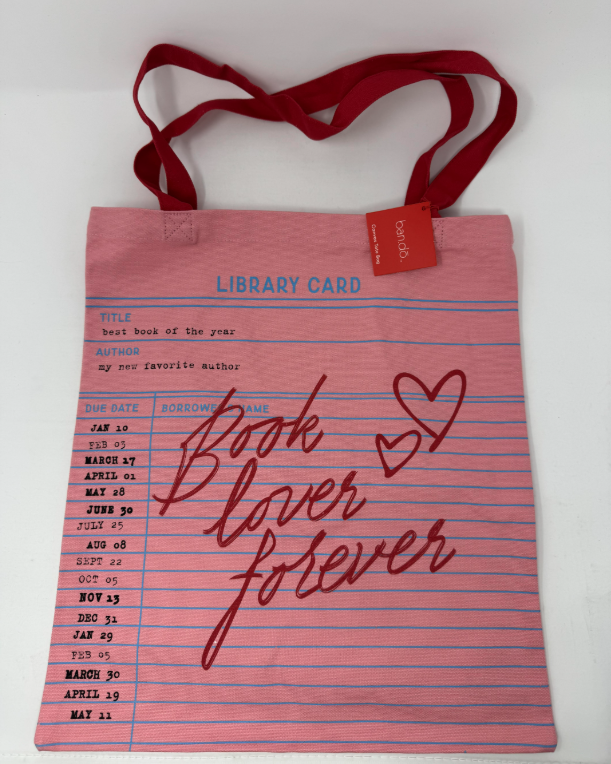 bandō.
Canvas Tote Bag
LIBRARY CARD
TITLE
best book of the year
AUTHOR
my new favorite author
DUE DATE
BORROWER NAME
JAN 10
FEB 05
MARCH 17
APRIL 01
MAY 28
JUNE 30
JULY 25
AUG 08
SEPT 22
OCT 05
NOV 13
DEC 31
JAN 29
FEB 05
MARCH 30
APRIL 19
MAY 11
Book
lover
forever